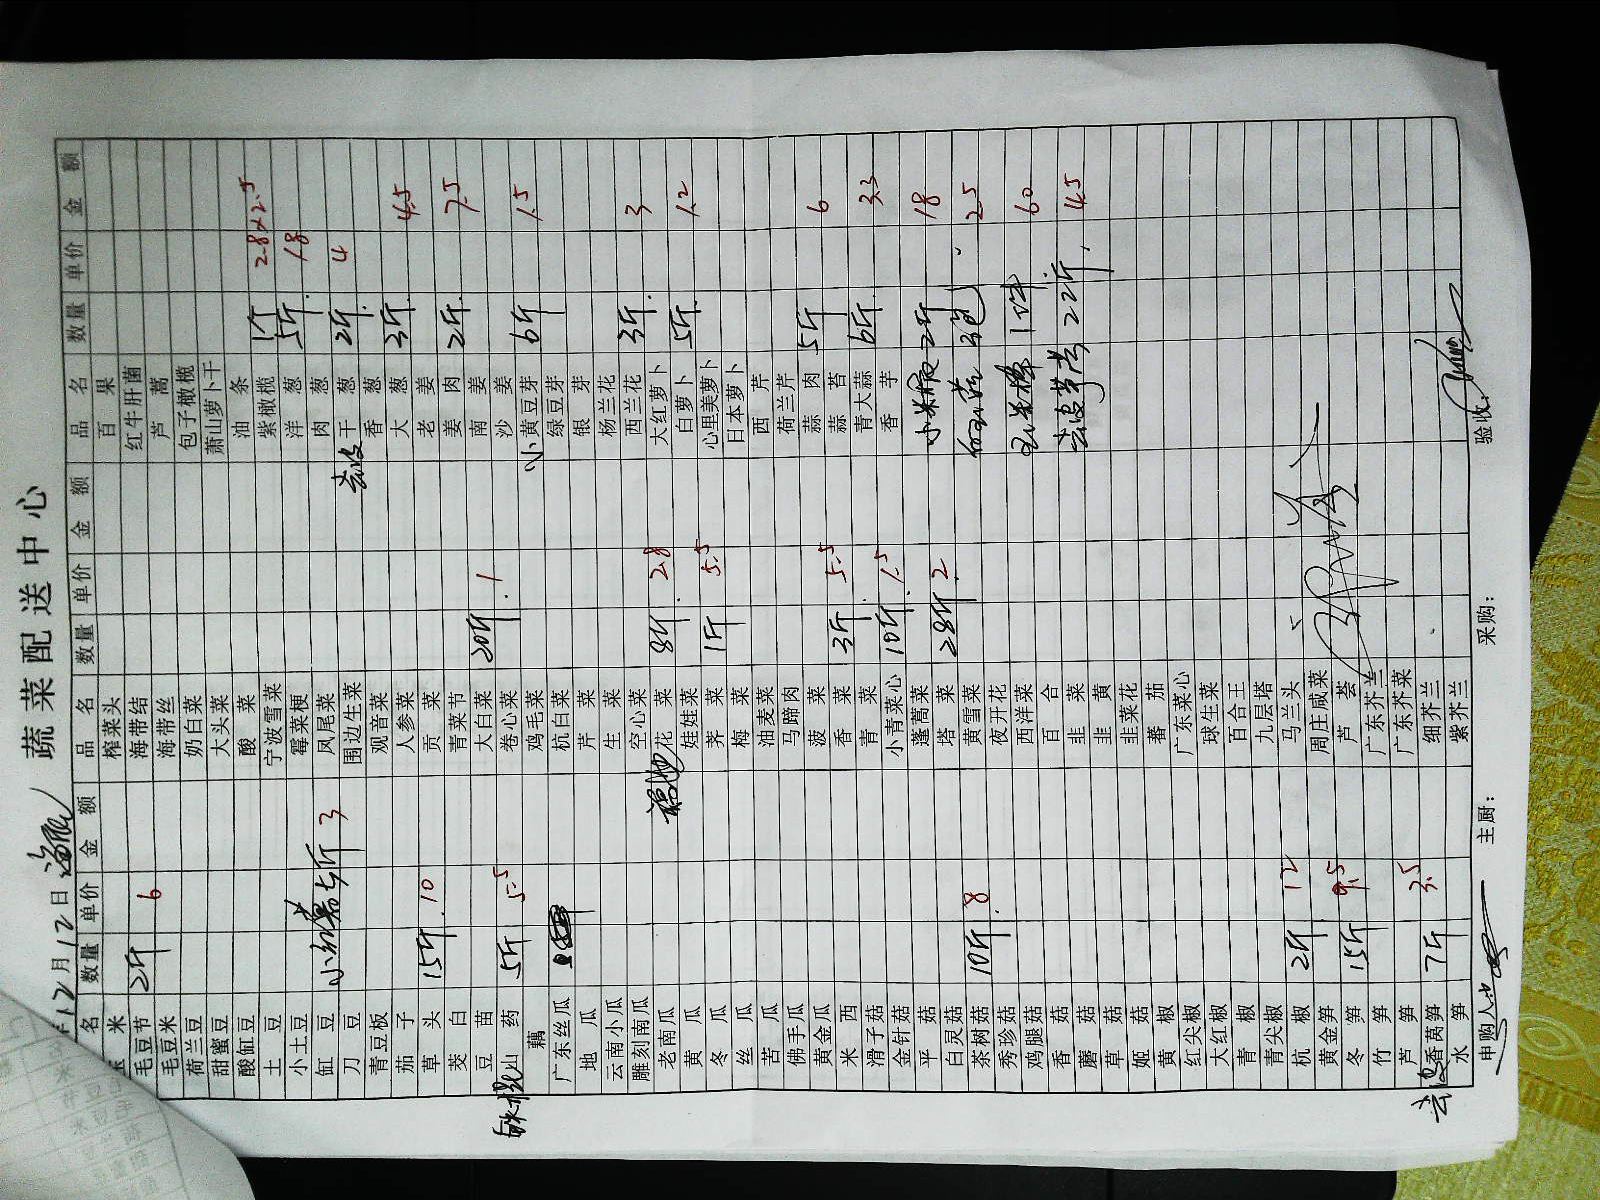 蔬菜配送中心
12月12日
名 数量 单价 金额 品名 数量 单价 金额 品名 数量 单价 金额
米 榨菜头 百果
毛豆节 2斤 6 海带结 红牛肝菌
毛豆米 海带丝 芦蒿
荷兰豆 奶白菜 包子橄榄
甜蜜豆 大头菜 萧山萝卜干
酸缸豆 酸菜 油条
土豆 宁波雪菜 紫橄榄 1个 2.8×2.5
小土豆 霉菜梗 洋葱 5斤 1.8
缸豆 小红薯 5斤 3 凤尾菜 肉葱
刀豆 围边生菜 去皮干葱 2斤 4
青豆板 观音菜 香葱
茄子 人参菜 大葱 3斤 4.5
草头 15斤 10 贡菜 老姜
茭白 青菜节 姜肉 2斤 7.5
豆苗 大白菜 20斤 1 南姜
铁棍山药 5斤 5.5 卷心菜 沙姜
藕 鸡毛菜 小黄豆芽 6斤 1.5
广东丝瓜 杭白菜 绿豆芽
地瓜 芹菜 银芽
云南小瓜 生菜 杨兰花
雕刻南瓜 空心菜 西兰花 3斤 3
老南瓜 花菜 8斤 2.8 大红萝卜
黄瓜 娃娃菜 白萝卜 5斤 1.2
冬瓜 荠菜 1斤 5.5 心里美萝卜
丝瓜 梅菜 日本萝卜
苦瓜 油麦菜 西芹
佛手瓜 马蹄肉 荷兰芹
黄金瓜 菠菜 蒜肉 5斤 6
米西 香菜 3斤 5.5 蒜苔
滑子菇 青菜 青大蒜 6斤 3.3
金针菇 小青菜心 10斤 1.5 香芋
平菇 蓬蒿菜 小米椒 2斤 18
白灵菇 塔菜 28斤 2
茶树菇 10斤 8 黄雪菜 3包 2.5
秀珍菇 夜开花
鸡腿菇 西洋菜 玉米棒 1件 60
香菇 百合
蘑菇 韭菜 去皮莴苣 22斤 4.5
草菇 韭黄
姬菇 韭菜花
黄椒 番茄
红尖椒 广东菜心
大红椒 球生菜
青椒 百合王
青尖椒 九层塔
杭椒 2斤 12 马兰头
黄金笋 周庄咸菜
冬笋 15斤 9.5 芦荟
竹笋 广东芥兰
芦笋 广东芥菜
去皮香莴笋 7斤 3.5 细芥兰
水笋 紫芥兰
申购人: 主厨: 采购: 验收: